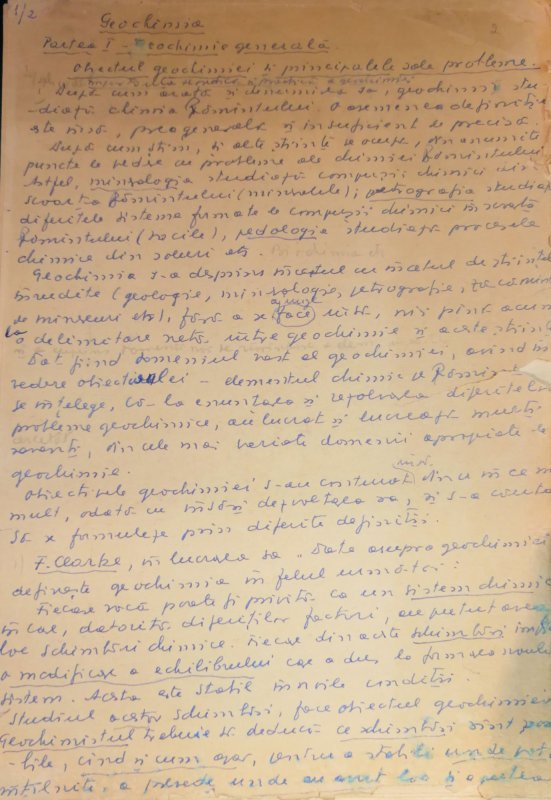 1/2
Geochimia
2
Partea I – Geochimie generală.
Obiectul geochimiei și principalele sale probleme.
După cum arată și denumirea sa, geochimia stu-
diază chimia Pămîntului. O asemenea definiție
este însă, prea generală și insuficient de precisă.
După cum știm, și alte științe se ocupă, din anumite
puncte de vedere cu probleme ale chimiei Pămîntului.
Astfel, mineralogia studiază compușii chimici din
scoarța Pămîntului (mineralele); petrografia studiază
diferitele sisteme formate de compușii chimici în scoarța
Pămîntului (rocile), pedologia studiază procesele
chimice din soluri etc.
Geochimia s-a desprins încetul cu încetul de științele
înrudite (geologie, mineralogie, petrografie, zăcăminte
de minereuri etc), fără a se face însă, nici pînă acum
o delimitare netă între geochimie și aceste științe
Dat fiind domeniul vast al geochimiei, avînd în
vedere obiectul ei – elementul chimic și Pămînt
se înțelege, că la enunțarea și rezolvarea diferitelor
probleme geochimice, au lucrat și lucrează mulți
savanți, din cele mai variate domenii apropiate de
geochimie.
Obiectivele geochimiei s-au conturat din ce în ce mai
mult, odată cu însăși dezvoltarea sa, și s-a căutat
să se formuleze prin diferite definiții.
F. Clarke, în lucrarea sa „Date asupra geochimiei
definește geochimia în felul următor:
Fiecare rocă poate fi privită ca un sistem chimic
în care, datorită diferiților factori, au putut avea
loc schimbări chimice. Fiecare din aceste schimbări
o modificare a echilibrului care a dus la formarea noului
sistem. Acesta este stabil în noile condiții.
Studiul acestor schimbări, face obiectul geochimiei
Geochimistul trebuie să deducă ce schimbări sînt posi-
-bile, cînd și cum apar, pentru a stabili unde pot
întîlnite, a prevede unde au avut loc și a